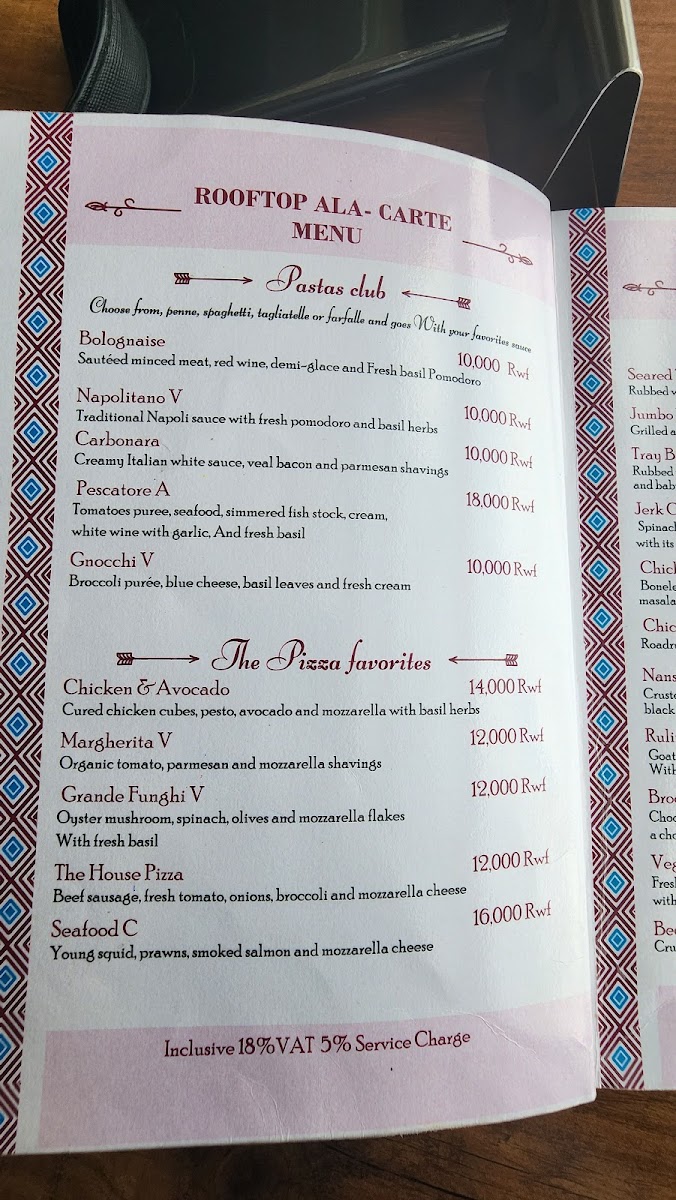 ROOFTOP ALA- CARTE
MENU
Pastas club
Choose from, penne, spaghetti, tagliatelle or farfalle and goes With your favorites sauce
Bolognaise 10,000 Rwf
Sautéed minced meat, red wine, demi-glace and Fresh basil Pomodoro
Napolitano V 10,000 Rwf
Traditional Napoli sauce with fresh pomodoro and basil herbs
Carbonara 10,000 Rwf
Creamy Italian white sauce, veal bacon and parmesan shavings
Pescatore A 18,000 Rwf
Tomatoes puree, seafood, simmered fish stock, cream,
white wine with garlic, And fresh basil
Gnocchi V 10,000 Rwf
Broccoli purée, blue cheese, basil leaves and fresh cream
The Pizza favorites
Chicken & Avocado 14,000 Rwf
Cured chicken cubes, pesto, avocado and mozzarella with basil herbs
Margherita V 12,000 Rwf
Organic tomato, parmesan and mozzarella shavings
Grande Funghi V 12,000 Rwf
Oyster mushroom, spinach, olives and mozzarella flakes
With fresh basil
The House Pizza 12,000 Rwf
Beef sausage, fresh tomato, onions, broccoli and mozzarella cheese
Seafood C 16,000 Rwf
Young squid, prawns, smoked salmon and mozzarella cheese
Inclusive 18% VAT 5% Service Charge
Seared
Rubbed
Jumbo
Grilled
Tray
Rubbed
and
Jerk
with its
masala
Goat
With